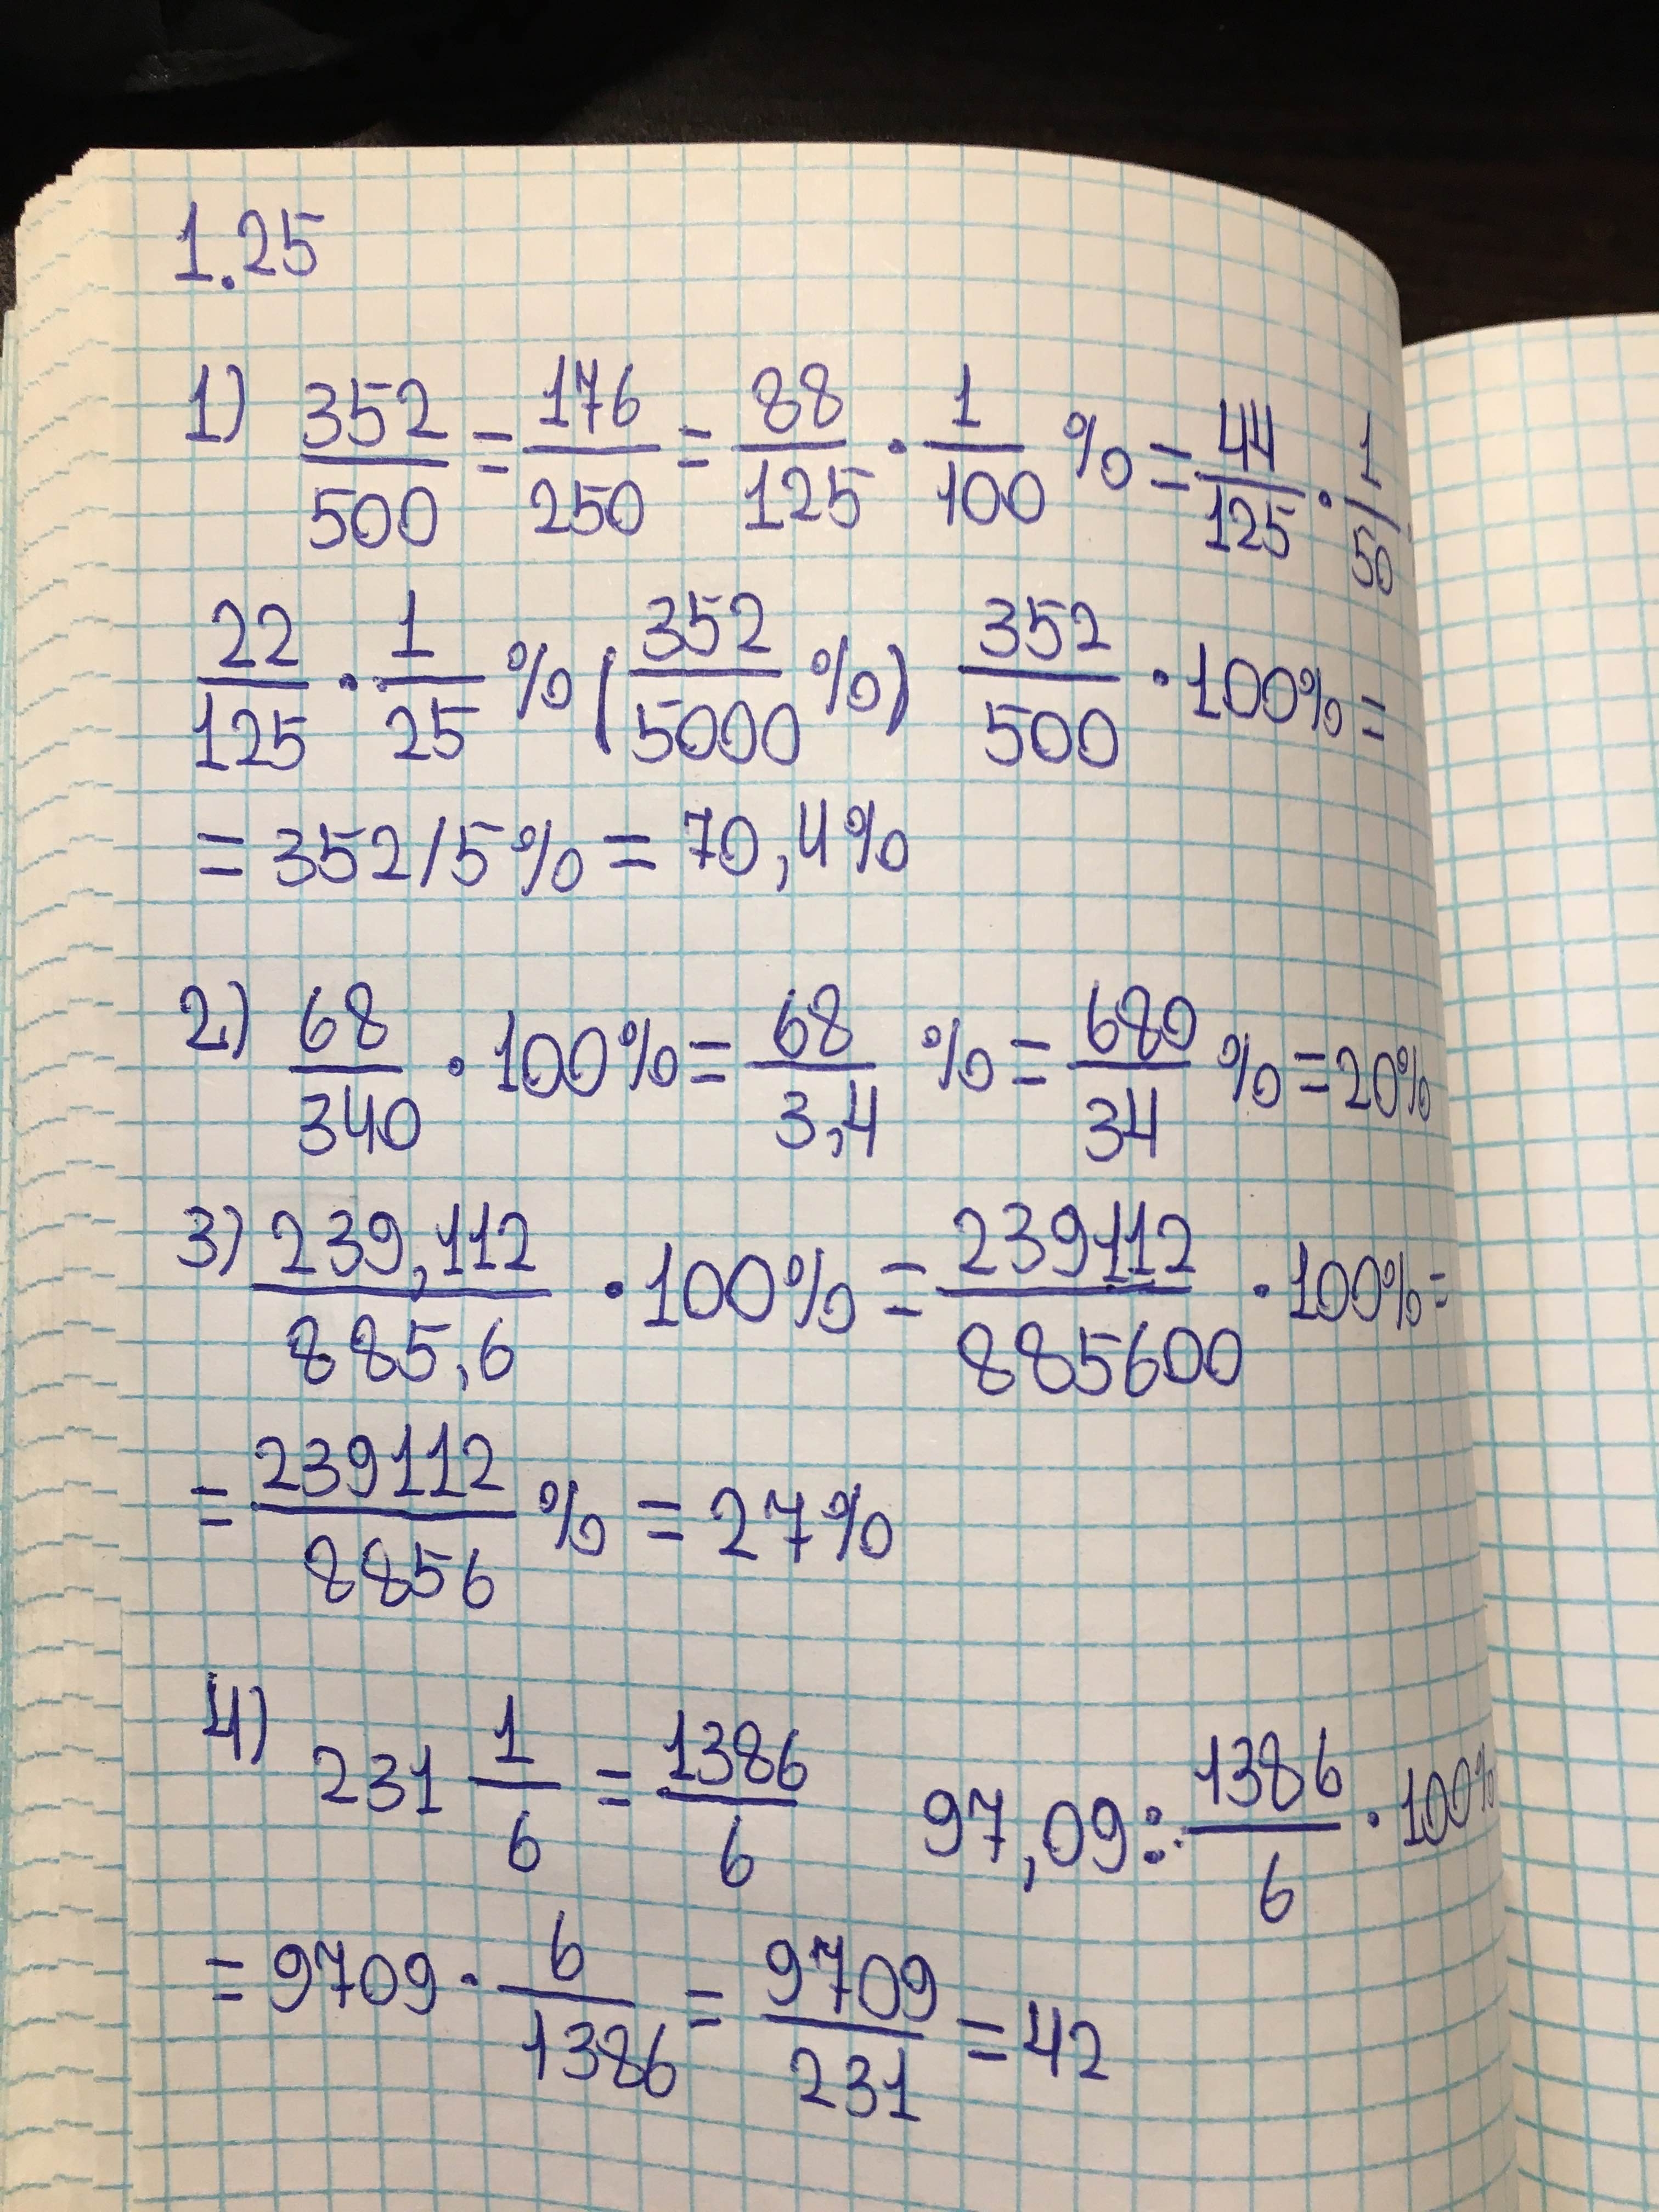 1.25
1) 352/500 = 176/250 = 88/125 · 1/100 % = 44/125 · 1/50
22/125 · 1/25 % (352/5000 %) 352/500 · 100% =
= 352/5% = 70,4%
2) 68/340 · 100% = 68/3,4 % = 680/34 % = 20%
3) 239,112/885,6 · 100% = 239112/885600 · 100% =
= 239112/8856 % = 27%
4) 231 1/6 = 1386/6 97,09 : 1386/6 · 100%
= 9709 · 6/1386 = 9709/231 = 42